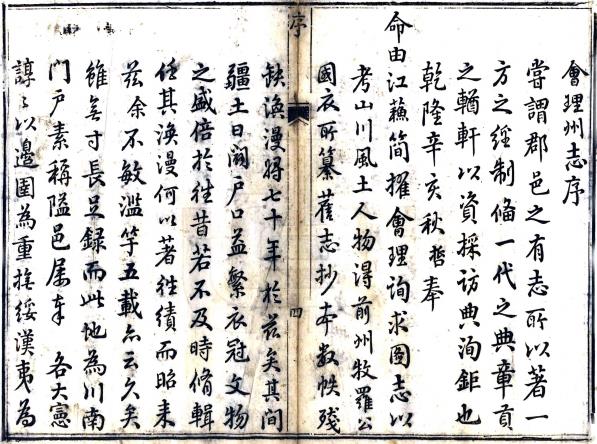 會理州志序
嘗謂郡邑之有志所以著一
方之經制俻一代之典章貢
之輶軒以資採访典洵鉅也
乾隆辛亥秋哲奉
命由江蘇簡擢會理詢求圖志以
考山川風土人物得前州牧羅公
國衣所纂舊志抄本數帙残
序
四
缺漁漫將七十年於兹矣其间
疆土日闢户口益繁衣冠文物
之盛倍於往昔若不及時脩輯
任其渙漫何以著往績而昭来
兹余不敏濫竽五載亦云久矣
雖無寸長足録而此地為川南
門户素稱隘邑屡奉 各大憲
諄〻以邊圉為重撫綏漢夷為